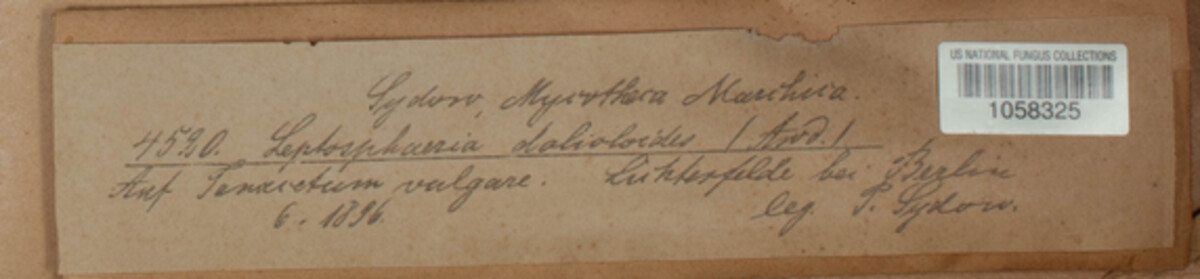 US NATIONAL FUNGUS COLLECTIONS
1058325
Sydow, Mycotheca Marchica.
4520. Leptosphaeria dolioloides (Awd.)
Auf Tanacetum vulgare. Lichterfelde bei Berlin
6. 1896. leg. P. Sydow.